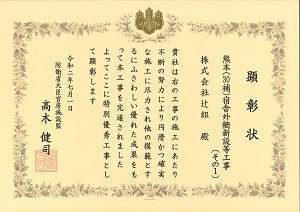 顕彰状
熊本(30補)宿舎外柵新設等工事
(その1)
株式会社辻組 殿
貴社は右の工事の施工にあたり
不断の努力により円滑かつ確実
な施工に尽力され他の模範とす
るにふさわしい優れた成果をも
って本工事を完遂されました
よってここに特別優秀工事とし
て顕彰します
令和二年七月一日
防衛省大臣官房施設監
高木健司